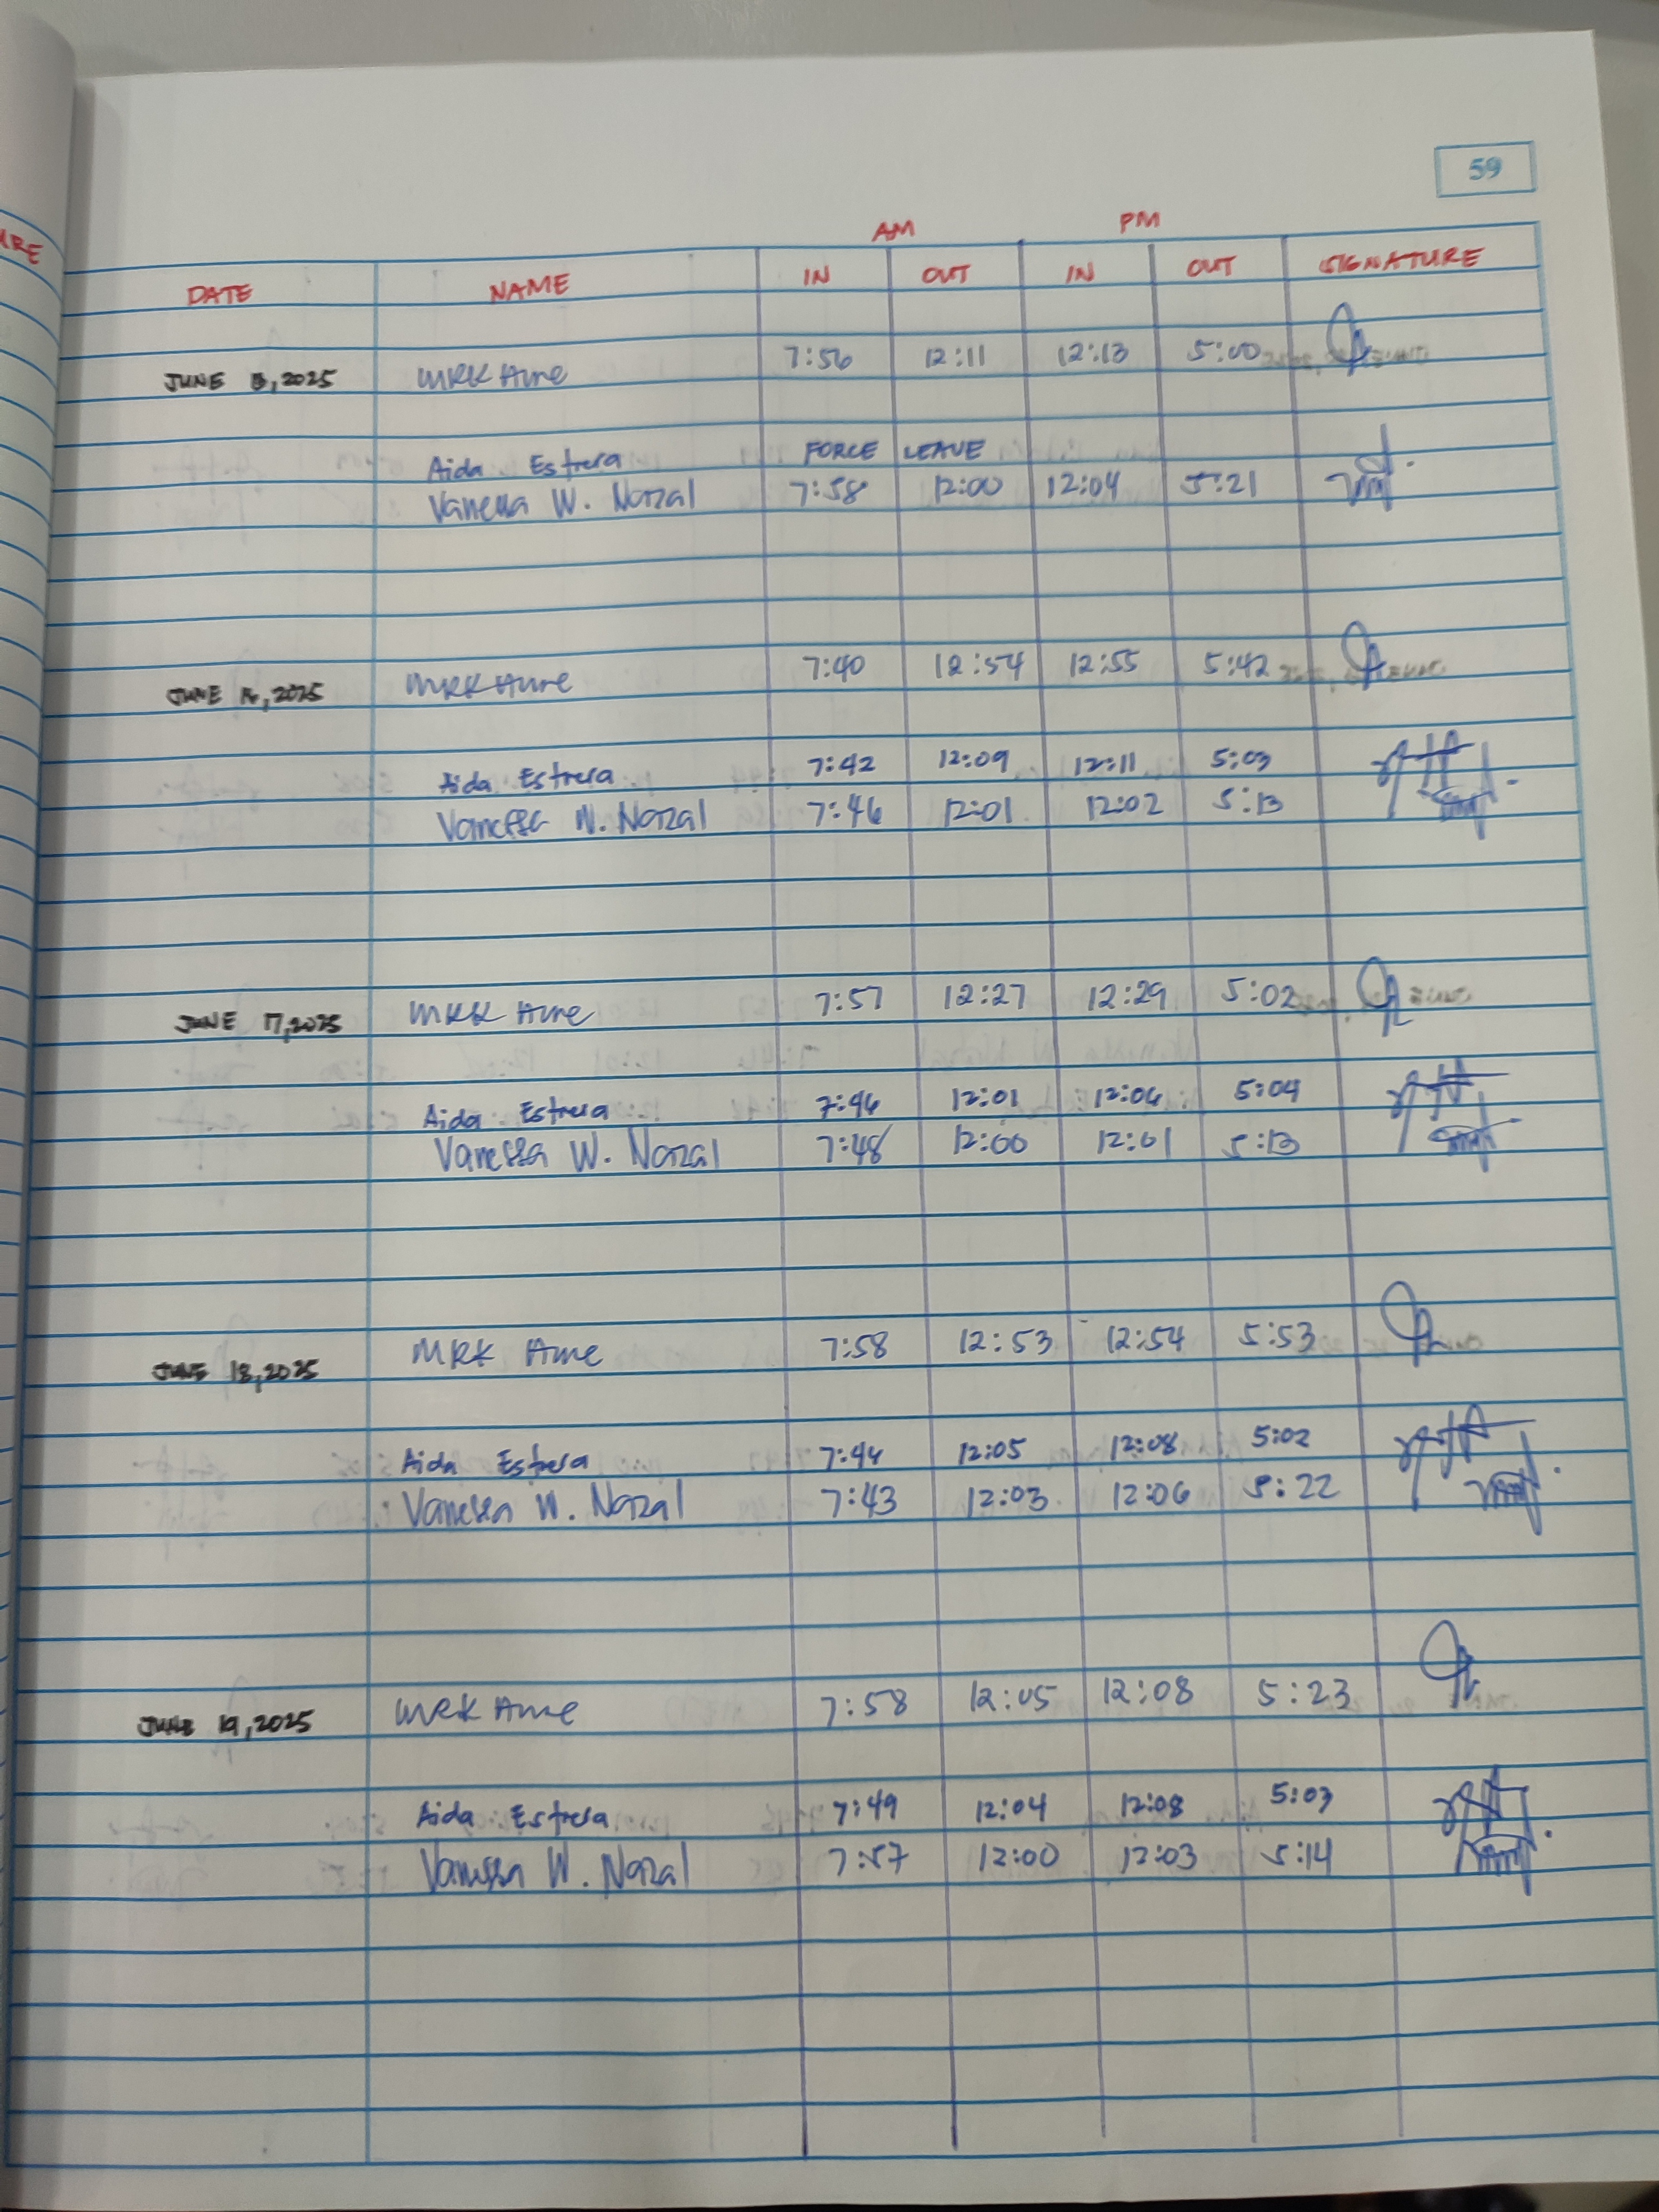 59
AM PM
DATE NAME IN OUT IN OUT SIGNATURE
JUNE 13, 2025 MRK Ame 7:56 12:11 12:13 5:00
Aida Estrera FORCE LEAVE
Vanessa W. Nazal 7:58 12:00 12:04 5:21
JUNE 16, 2025 MRK Ame 7:40 12:54 12:55 5:42
Aida Estrera 7:42 12:09 12:11 5:03
Vanessa W. Nazal 7:46 12:01 12:02 5:13
JUNE 17, 2025 MRK Ame 7:57 12:27 12:29 5:02
Aida Estrera 7:46 12:01 12:06 5:04
Vanessa W. Nazal 7:48 12:00 12:01 5:13
JUNE 18, 2025 MRK Ame 7:58 12:53 12:54 5:53
Aida Estrera 7:44 12:05 12:08 5:02
Vanessa W. Nazal 7:43 12:03 12:06 5:22
JUNE 19, 2025 MRK Ame 7:58 12:05 12:08 5:23
Aida Estrera 7:49 12:04 12:08 5:03
Vanessa W. Nazal 7:57 12:00 12:03 5:14